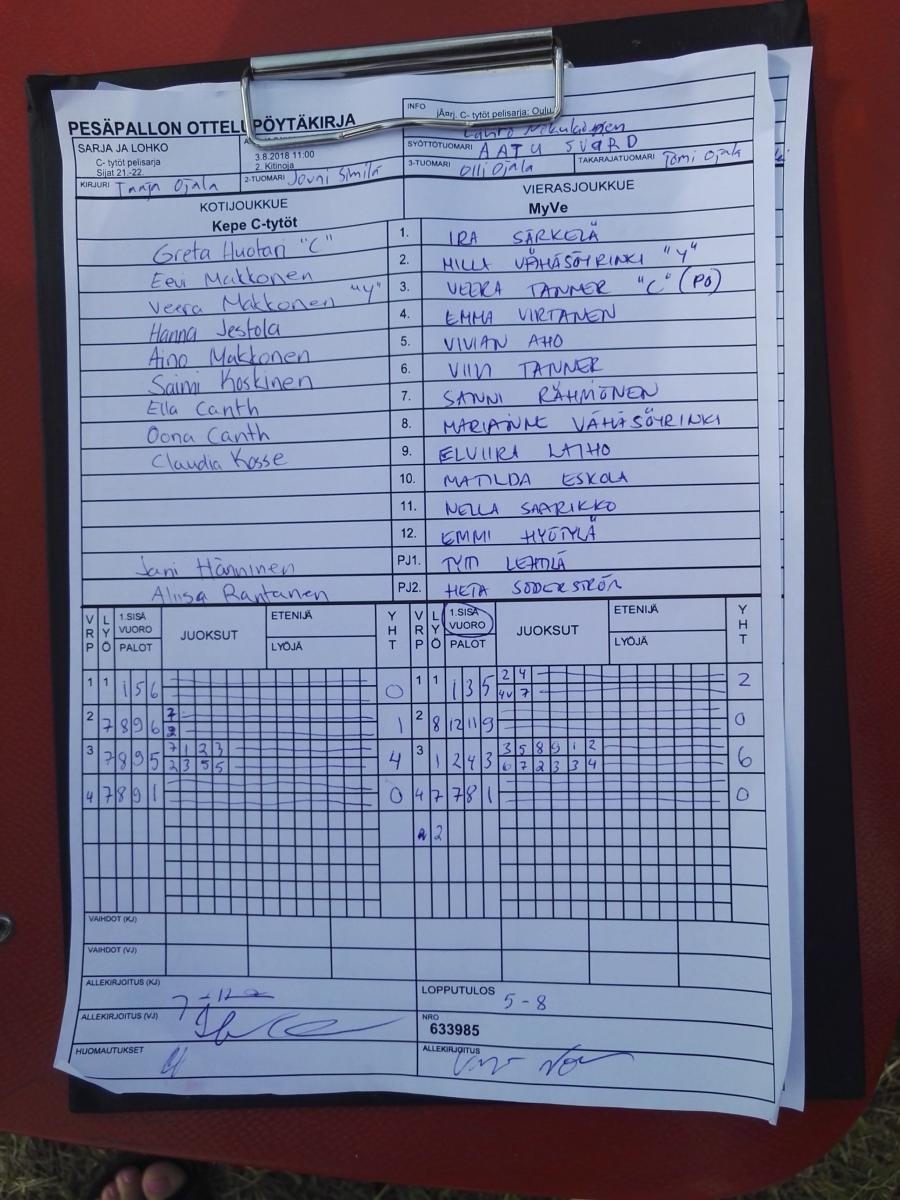 PESÄPALLON OTTELUPÖYTÄKIRJA
INFO
jÄarj. C- tytöt pelisarja: Oulu,
SARJA JA LOHKO
C- tytöt pelisarja
Sijat 21.-22.
3.8.2018 11:00
2. Kitinoja
SYÖTTÖTUOMARI AATU SVÄRD
KIRJURI Tanja Ojala
2-TUOMARI Jouni Similä
3-TUOMARI Olli Ojala
TAKARAJATUOMARI Tomi Ojala
KOTIJOUKKUE
Kepe C-tytöt
VIERASJOUKKUE
MyVe
Greta Huotari "C" 1. IRA SÄRKELÄ
Eevi Makkonen 2. MILLA VÄHÄSÖYRINKI "Y"
Veera Makkonen "Y" 3. VEERA TANNER "C" (PÖ)
Hanna Jestola 4. EMMA VIRTANEN
Aino Makkonen 5. VIVIAN AHO
Saimi Koskinen 6. VIIVI TANNER
Ella Canth 7. SANNI RÄHMÖNEN
Oona Canth 8. MARIANNE VÄHÄSÖYRINKI
Claudia Kosse 9. ELVIIRA LAIHO
10. MATILDA ESKOLA
11. NELLA SAARIKKO
12. EMMI HYÖTYLÄ
Jani Hänninen PJ1.
Aliisa Rantanen PJ2. HETA SÖDERSTRÖM
VRP LYÖ 1.SISÄ VUORO PALOT JUOKSUT ETENIJÄ LYÖJÄ YHT VRP LYÖ 1.SISÄ VUORO PALOT JUOKSUT ETENIJÄ LYÖJÄ YHT
1 1 1 5 6 0 1 1 1 3 5 2 4 2
4V 7
2 7 8 9 6 7 1 2 8 12 11 9 0
2
3 7 8 9 5 7 1 2 3 4 3 1 2 4 3 3 5 8 9 1 2 6
2 3 5 5 6 7 2 3 3 4
4 7 8 9 1 0 4 7 7 8 1 0
2
VAIHDOT (KJ)
VAIHDOT (VJ)
ALLEKIRJOITUS (KJ)
LOPPUTULOS 5-8
ALLEKIRJOITUS (VJ)
NRO
633985
HUOMAUTUKSET
ALLEKIRJOITUS